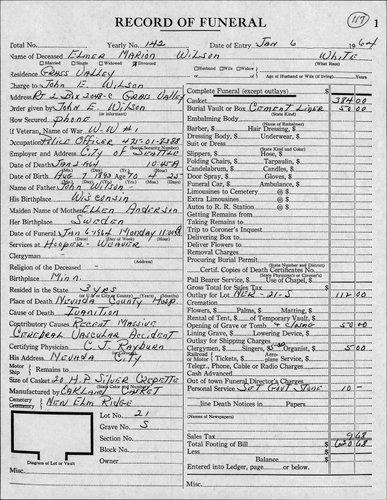 RECORD OF FUNERAL
117
1
Total No. Yearly No. 142 Date of Entry Jan 6 1964
Name of Deceased Elmer Marion Wilson White
Married Single Widowed Divorced Husband Wife Widow (What Race)
Residence Grass Valley of Age of Husband or Wife (if living)
Charge to John E Wilson
Address Rt 2 Box 2048-C Grass Valley
Order given by John E Wilson
How Secured phone
If Veteran, Name of War W-W #1
Occupation Police Officer
(Social Security Number)
Employer and Address City of Seattle
Date of Death Jan 4 1964 10:45 A
Date of Birth Aug 9 1893 Age 70 4 25
Name of Father John Wilson
His Birthplace Wisconsin
Maiden Name of Mother Ellen Anderson
Her Birthplace Sweden
Date of Funeral Jan 6-1964 Monday 11:30 AM
Services at Hooper-Weaver
Clergyman
Religion of the Deceased
Birthplace Minn.
Resided in the State 3 yrs
Place of Death Nevada County Hosp.
Cause of Death Inanition
Contributory Causes Recent Massive
Cerebral Vascular Accident
Certifying Physician C. J. Rayburn
His Address Nevada City
Motor Ship Remains to
Size of Casket 20 H.P. Silver Crepette
Manufactured by Oakland Casket
Cemetery Crematory New Elm Ridge
Lot No. 21
Grave No. S
Section No.
Block No.
Owner
Diagram of Lot or Vault
Misc.
Complete Funeral (except outlays) $
Casket 384 00
Burial Vault or Box Cement Liner 58 00
(State Kind)
Embalming Body
(Name of Embalmer)
Barber, $ Hair Dressing, $
Dressing Body, $ Underwear, $
Suit or Dress
(State Kind)
Slippers, $ Hose, $
Folding Chairs, $ Tarpaulin, $
Candelabrum, $ Candles, $
Door Spray, $ Gloves, $
Funeral Car, $ Ambulance, $
Limousines to Cemetery @ $
Extra Limousines @ $
Autos to R. R. Station @ $
Getting Remains from
Taking Remains to
Trip to Coroner's Inquest
Delivering Box to
Deliver Flowers to
Removal Charges
Procuring Burial Permit
(State Number and District)
Certif. Copies of Death Certificates No.
Pall Bearer Service, $ Use of Chapel, $
Gross Total for Sales Tax $
Outlay for Lot NER-21-S 112 00
Flowers, $ Palms, $ Matting, $
Rental of Tent, $ of Temporary Vault, $
Opening of Grave or Tomb & Close 50 00
Lining Grave, $ Lowering Device, $
Outlay for Shipping Charges
Clergymen, $ Singers, $ Organist, $ 5 00
Railroad Aero- or Motor Tickets, $ plane Service, $
Telegr., Phone, Cable or Radio Charges
Cash Advanced
Out of town Funeral Director's Charges
Personal Service Set Govt Stone 10 -
line Death Notices in Papers
(Names of Newspapers)
Sales Tax 9 68
Total Footing of Bill $
Less
Balance $
Entered into Ledger, page or below.
Misc.